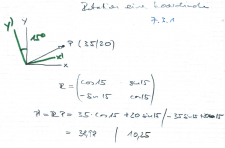 Rotation eine Koordinate
7.3.1
y' y
15°
P (35|20)
x'
x
R = (cos 15 sin 15
-sin 15 cos 15)
P' = R·P = 35·cos 15 + 20 sin 15 / -35 sin 15 +
= 38,98 / 10,25